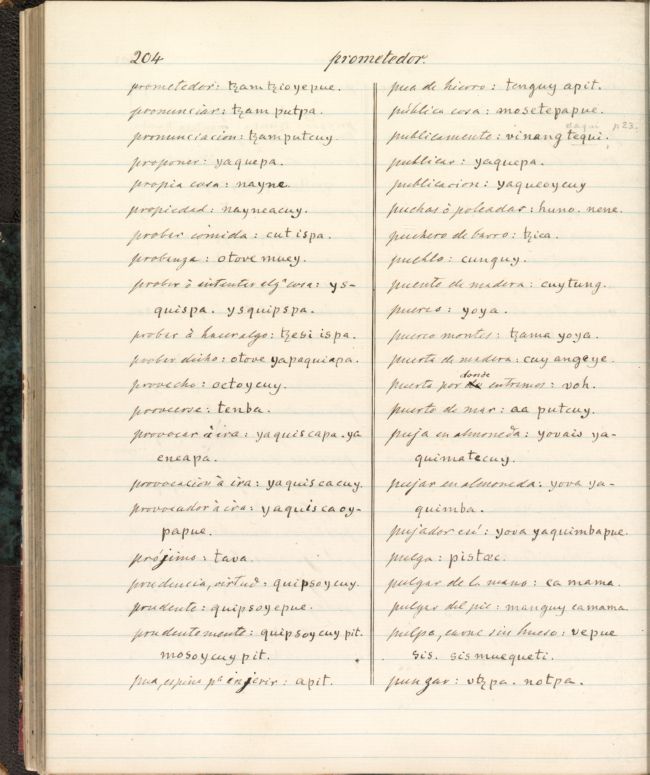 204
prometedor.
prometedor: tzamtzioyepue.
pronunciar: tzam putpa.
pronunciacion: tzamputcuy
proponer: yaquepa.
propia cosa: nayne.
propiedad: nayneacuy.
probar comida: cut ispa.
probanza: otove muey.
probar ò intentar alga cosa: ys-
quispa. ysquipspa.
probar à hacer algo: tzesi ispa.
probar dicho: otove yapaquiapa.
provecho: octoycuy.
proveerse: tenba.
provocar à ira: yaquiscapa. ya
eneapa.
provocacion à ira: yaquiscacuy.
provocador à ira: yaquiscaoy-
papue.
prójimo: tava.
prudencia, virtud: quipsoycuy.
prudente: quipsoyepue.
prudentemente: quipsoycuy pit.
mosoycuy pit.
pua, espina pa injerir: apit.
pua de hierro: tenguy apit.
pública cosa: mosetepapue.
publicamente: vinang tequi. p23.
publicar: yaquepa.
publicacion: yaqueoycuy
puchas ò poleadas: huno. nene.
puchero de barro: tzica.
pueblo: cunguy.
puente de madera: cuytung.
puerco: yoya.
puerco montes: tzama yoya.
puerta de madera: cuy angeye.
puerta por donde entremos: voh.
puerto de mar: aa putcuy.
puja en almoneda: yovaio ya-
quimatecuy.
pujar en almoneda: yova ya-
quimba.
pujador asi: yova yaquimbapue.
pulga: pistæc.
pulgar de la mano: ca mama.
pulgar del pie: manguy camama.
pulpa, carne sin hueso: vepue
sis. sis muequeti.
punzar: utzpa. notpa.